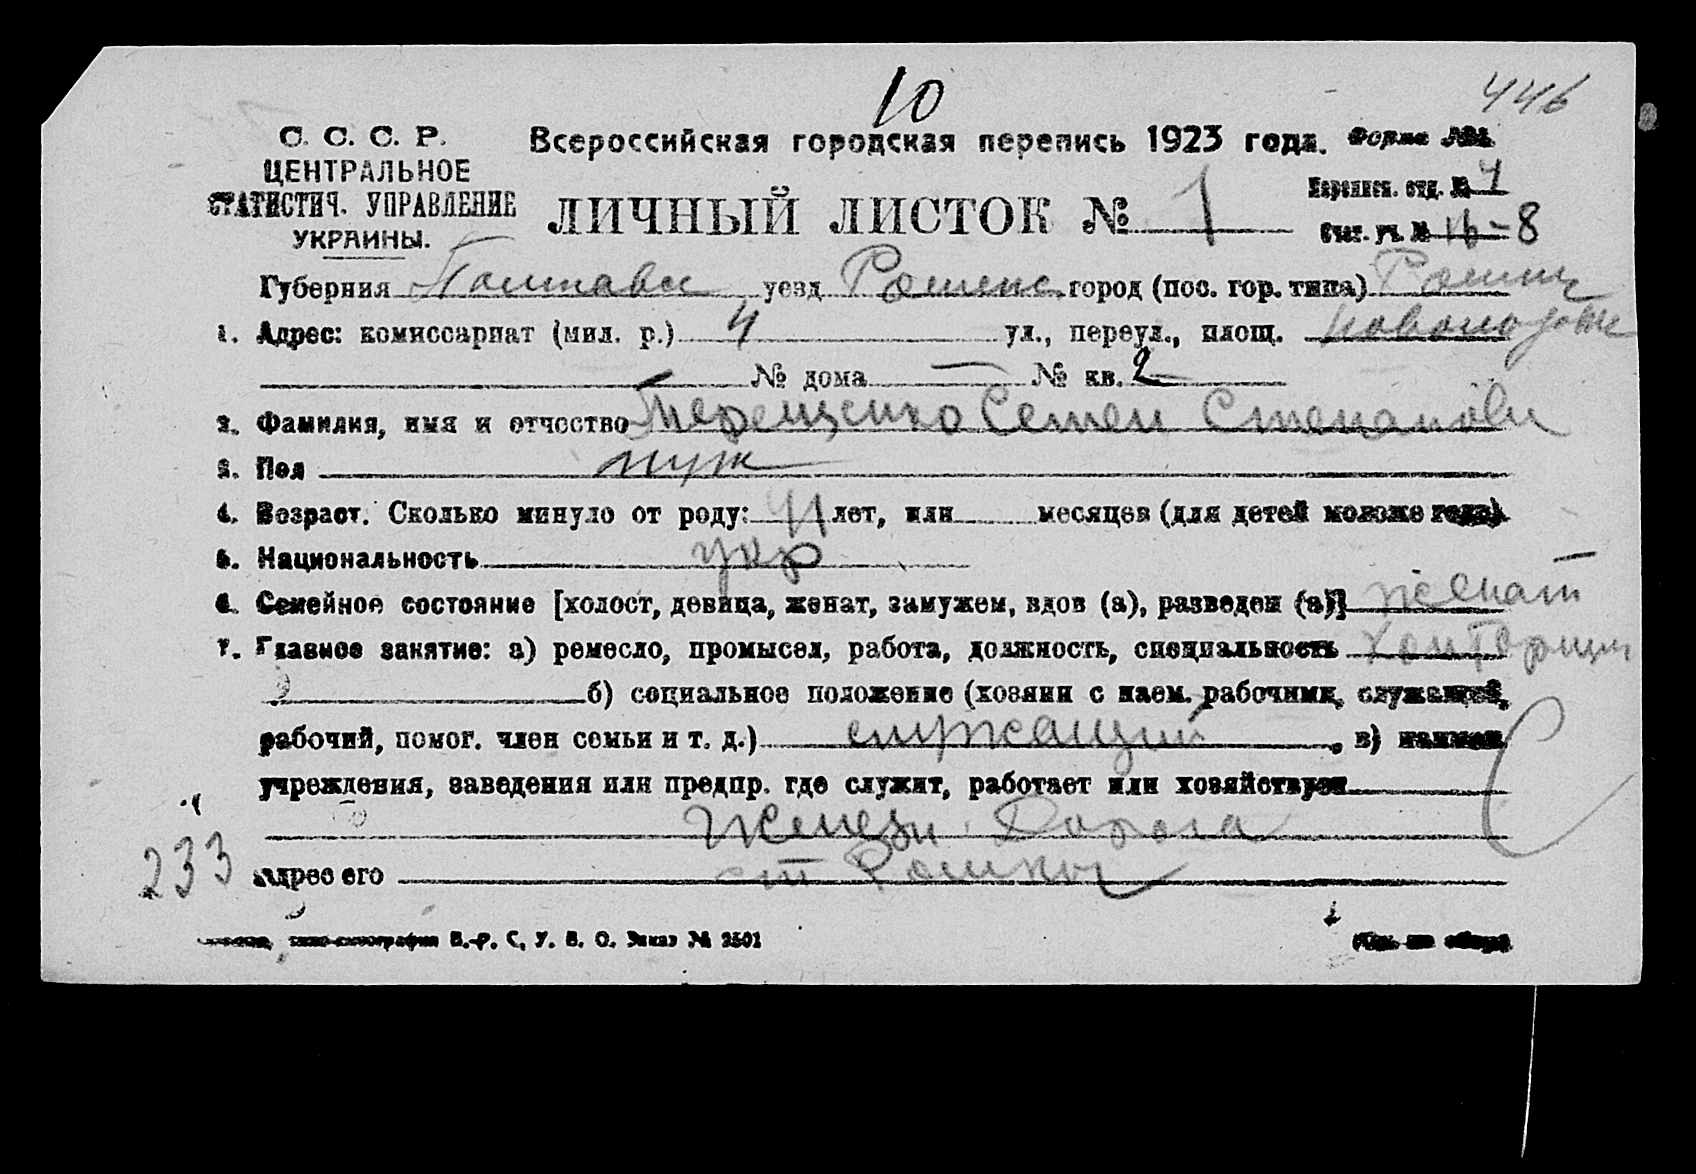 10
446
С. С. С. Р.
ЦЕНТРАЛЬНОЕ
СТАТИСТИЧ. УПРАВЛЕНИЕ
УКРАИНЫ.
Всероссийская городская перепись 1923 года. Форма №
ЛИЧНЫЙ ЛИСТОК № 1
Переписн. отд. № 4
Счет. уч. № 16-8
Губерния Полтавск уезд Роменс. город (пос. гор. типа) Ромны
1. Адрес: комиссариат (мил. р.) 4 ул., переул., площ.
№ дома — № кв. 2
2. Фамилия, имя и отчество Терещенко Семен Степанови
3. Пол муж
4. Возраст. Сколько минуло от роду: 41 лет, или месяцев (для детей моложе года).
5. Национальность укр
6. Семейное состояние [холост, девица, женат, замужем, вдов (а), разведен (а)] женат
7. Главное занятие: а) ремесло, промысел, работа, должность, специальность конторщик
б) социальное положение (хозяин с наем. рабочими, служащий,
рабочий, помог. член семьи и т. д.) служащий, в) наимен.
учреждения, заведения или предпр. где служит, работает или хозяйствует
Железн. Дорога
233
Адрес его ст Ромны
типо-литография В.-Р. С. У. В. О. Заказ № 2501